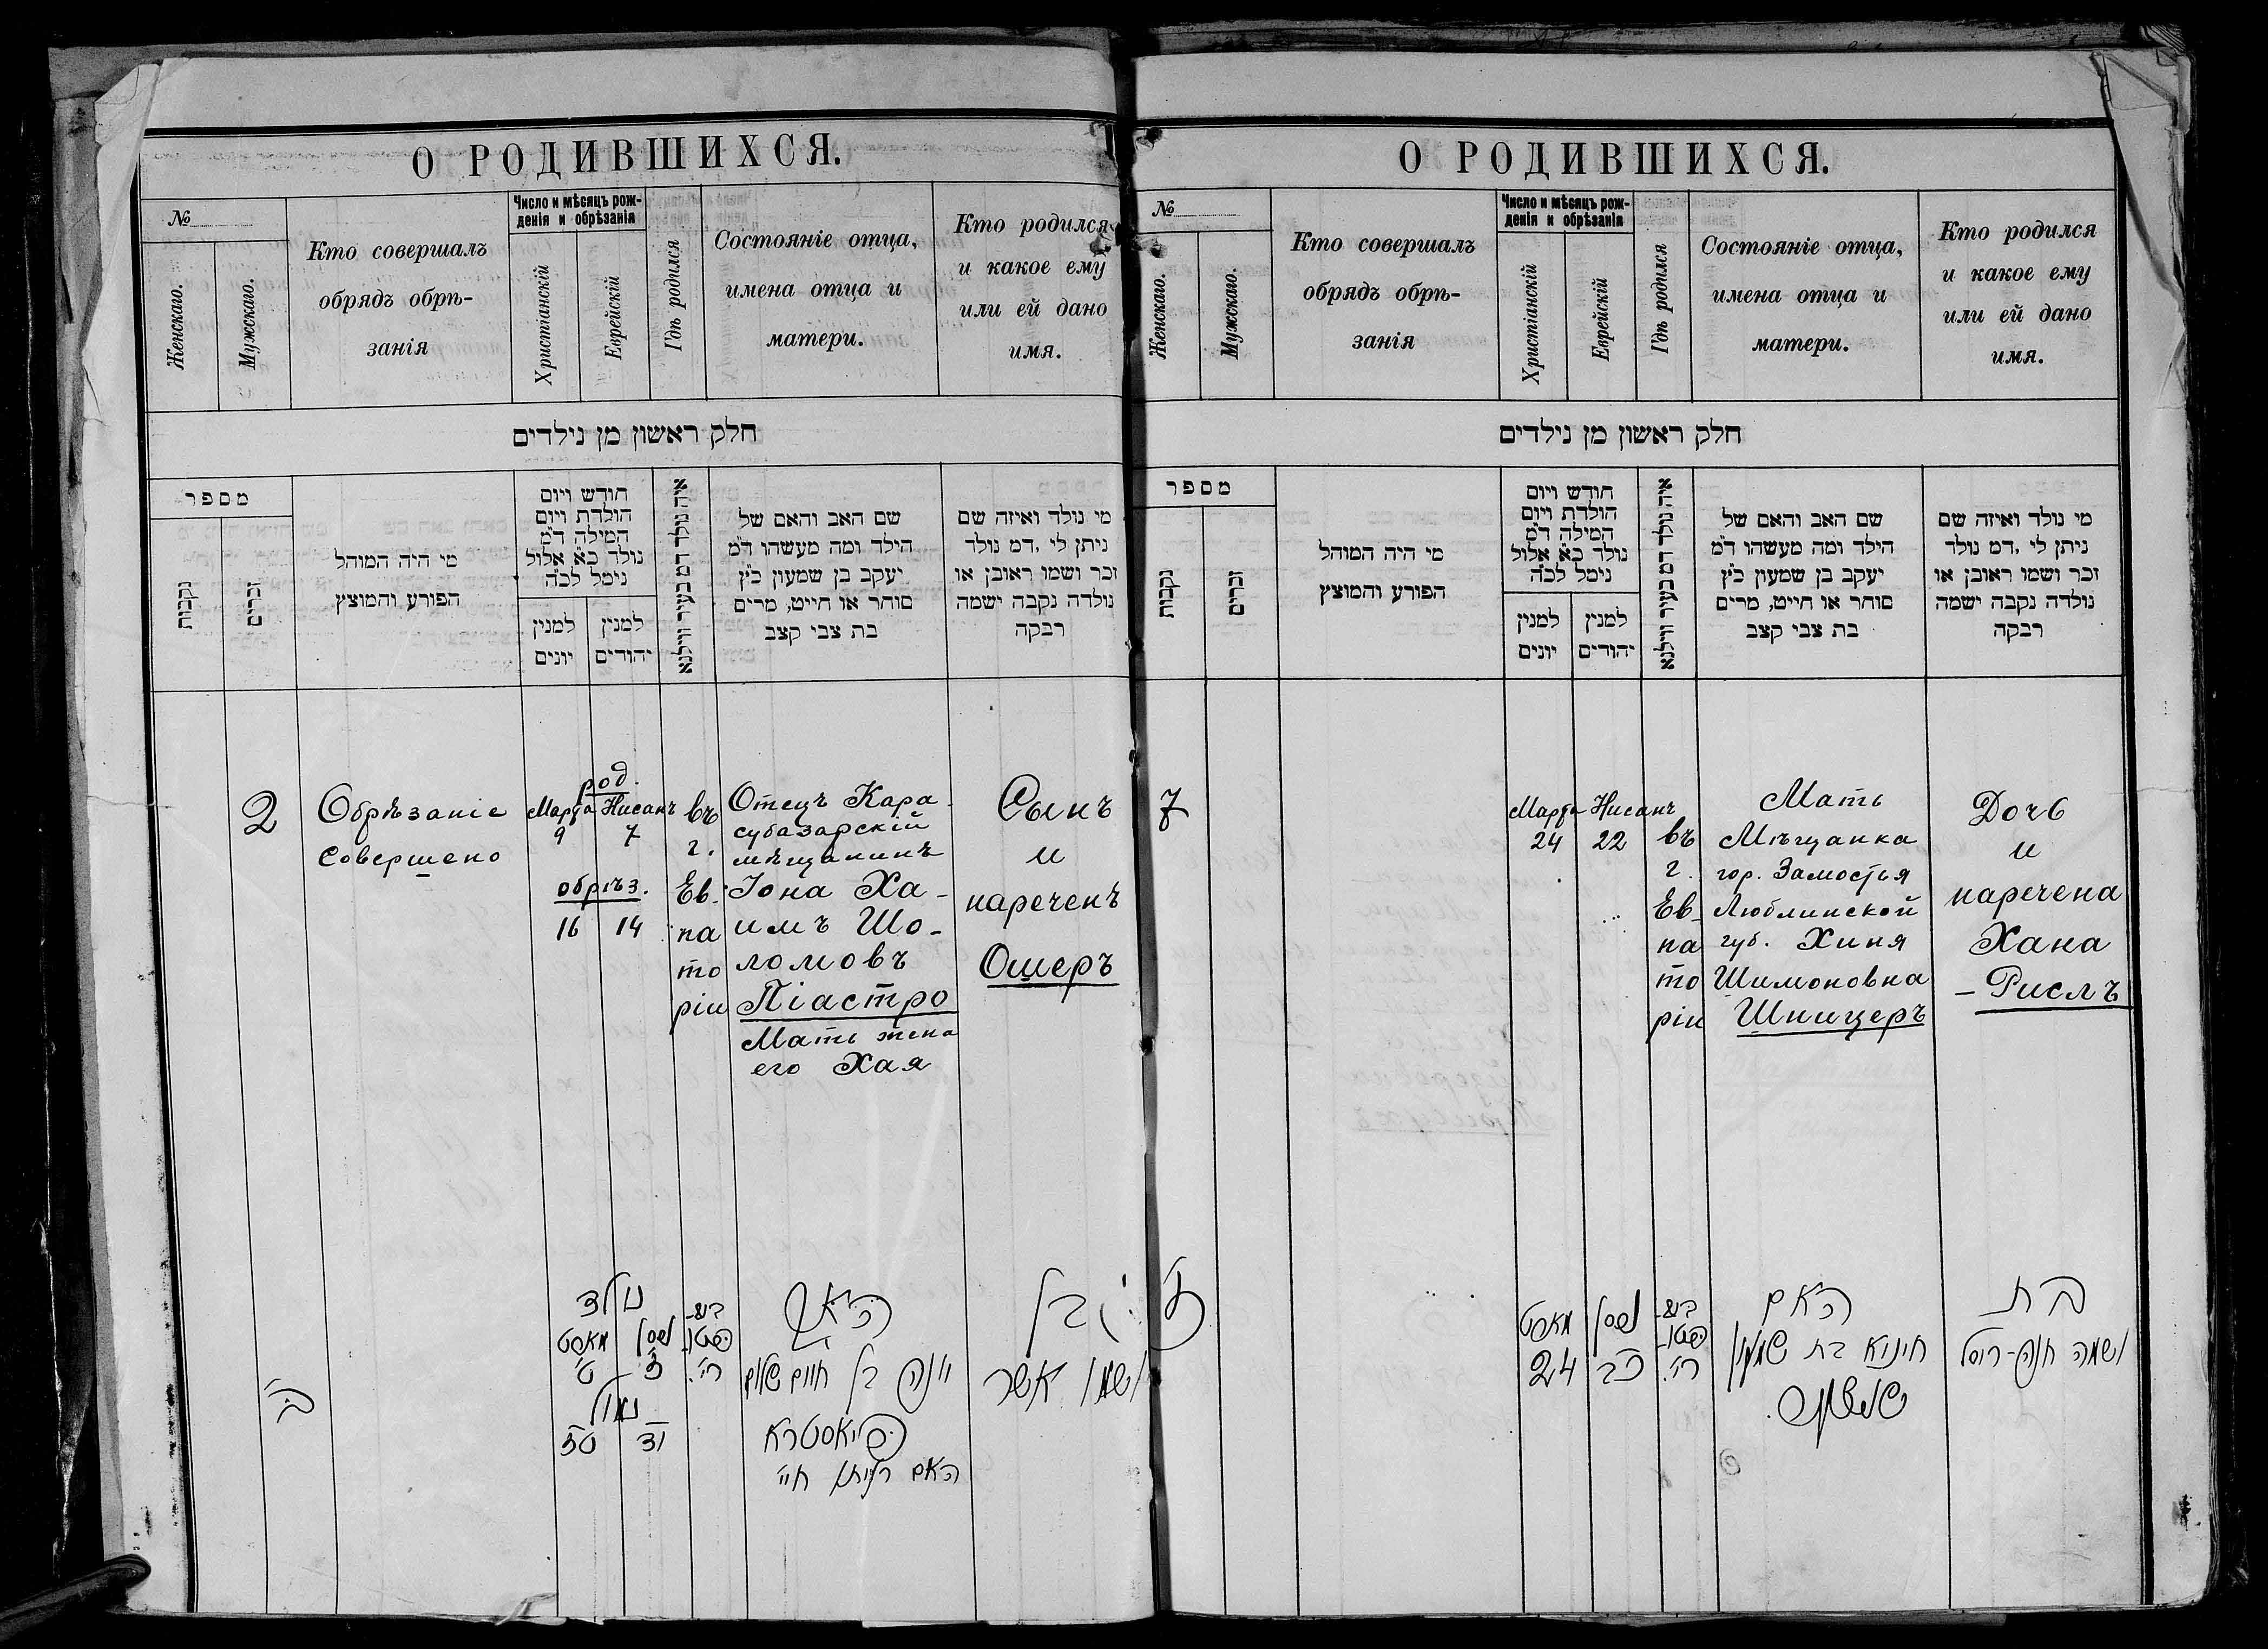 О РОДИВШИХСЯ.
№
Женскаго.
Мужскаго.
Кто совершалъ
обрядъ обрѣ-
занія
Число и мѣсяцъ рож-
денія и обрѣзанія
Христіанскій
Еврейскій
Гдѣ родился
Состояніе отца,
имена отца и
матери.
Кто родился
и какое ему
или ей дано
имя.
חלק ראשון מן נילדים
מספר
נקבות
זכרים
מי היה המוהל
הפורע והמוצץ
חודש ויום
הולדת ויום
המילה ד״מ
נולד כ״א אלול
נימל לכ״ה
למנין
יונים
למנין
יהודים
איה נולד דמ בעיר ווילנא
שם האב והאם של
הילד ומה מעשהו ד״מ
יעקב בן שמעון כ״ץ
סוחר או חייט, מרים
בת צבי קצב
מי נולד ואיזה שם
ניתן לי, דמ נולד
זכר ושמו ראובן או
נולדה נקבה ישמה
רבקה
2
Обрѣзаніе
совершено
род.
Марта Нисанъ
9 7
обрѣз.
16 14
въ
г.
Ев-
па
то
ріи
Отецъ Кара-
субазарскій
мѣщанинъ
Іона Ха-
имъ Шо-
ломовъ
Піастро
Мать жена
его Хая
Сынъ
и
нареченъ
Ошеръ
ב׳
נולד
מארט ניסן
ט׳ ז׳
נמול
טז יד
האב
יונה בן חיים שלום
פיאסטרא
האם רעיתו חי׳
בן
ושמו אשר
О РОДИВШИХСЯ.
№
Женскаго.
Мужскаго.
Кто совершалъ
обрядъ обрѣ-
занія
Число и мѣсяцъ рож-
денія и обрѣзанія
Христіанскій
Еврейскій
Гдѣ родился
Состояніе отца,
имена отца и
матери.
Кто родился
и какое ему
или ей дано
имя.
חלק ראשון מן נילדים
מספר
נקבות
זכרים
מי היה המוהל
הפורע והמוצץ
חודש ויום
הולדת ויום
המילה ד״מ
נולד כ״א אלול
נימל לכ״ה
למנין
יונים
למנין
יהודים
איה נולד דמ בעיר ווילנא
שם האב והאם של
הילד ומה מעשהו ד״מ
יעקב בן שמעון כ״ץ
סוחר או חייט, מרים
בת צבי קצב
מי נולד ואיזה שם
ניתן לי, דמ נולד
זכר ושמו ראובן או
נולדה נקבה ישמה
רבקה
7
Марта Нисанъ
24 22
въ
г.
Ев-
па
то
ріи
Мать
Мѣщанка
гор. Замостья
Люблинской
губ. Хиня
Шимоновна
Шницеръ
Дочь
и
наречена
Хана
-Рислъ
מארט ניסן
24 כב
האם
חיניא בת שמעון
בת
ושמה חנה-ריסל